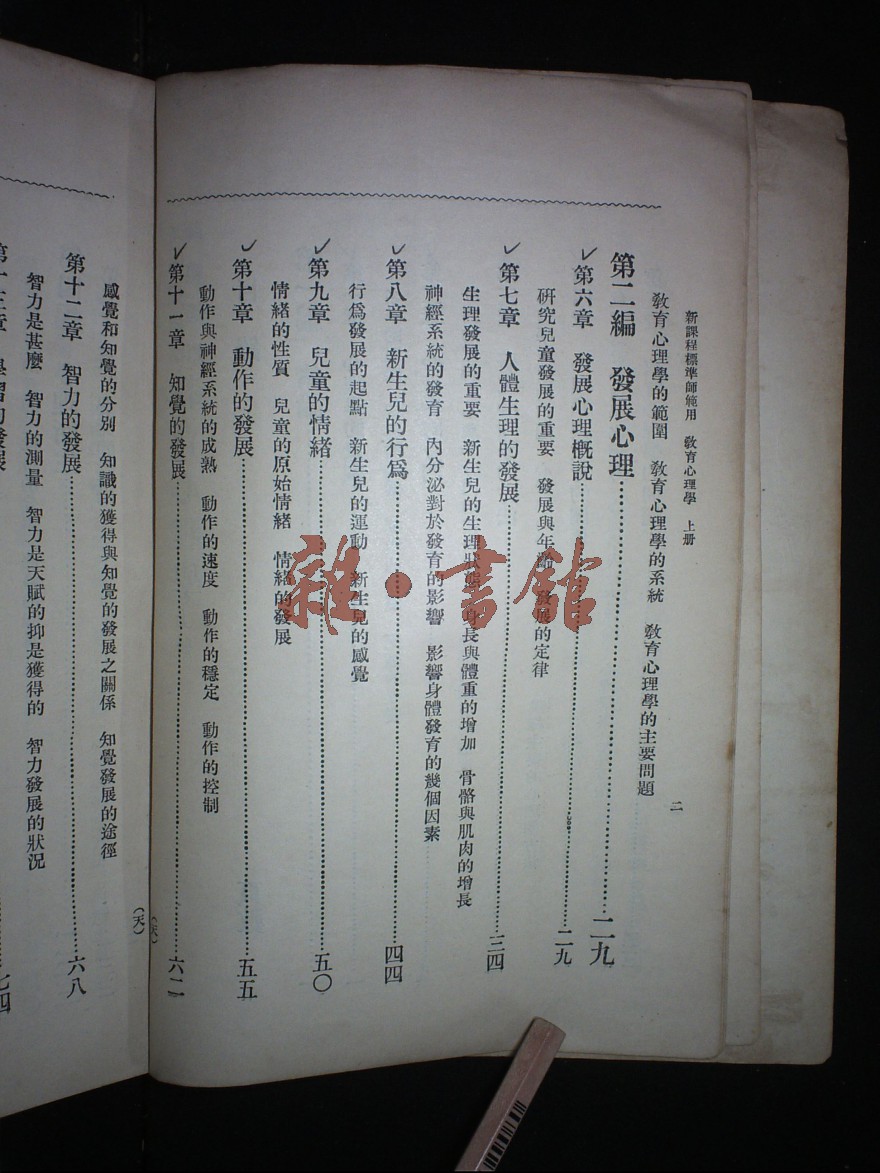 新課程標準師範用　教育心理學　上册
二
教育心理學的範圍　教育心理學的系統　教育心理學的主要問題
第二編　發展心理……二九
第六章　發展心理概說……二九
研究兒童發展的重要　發展與年齡　發展的定律
第七章　人體生理的發展……三四
生理發展的重要　新生兒的生理狀態　身長與體重的增加　骨骼與肌肉的增長
神經系統的發育　內分泌對於發育的影響　影響身體發育的幾個因素
第八章　新生兒的行爲……四四
行爲發展的起點　新生兒的運動　新生兒的感覺
第九章　兒童的情緒……五〇
情緒的性質　兒童的原始情緒　情緒的發展
第十章　動作的發展……五五
動作與神經系統的成熟　動作的速度　動作的穩定　動作的控制
第十一章　知覺的發展……六二
（天）
（天）
感覺和知覺的分別　知識的獲得與知覺的發展之關係　知覺發展的途徑
第十二章　智力的發展……六八
智力是甚麽　智力的測量　智力是天賦的抑是獲得的　智力發展的狀況
第十三章　學習的發展……七四
雜·書館